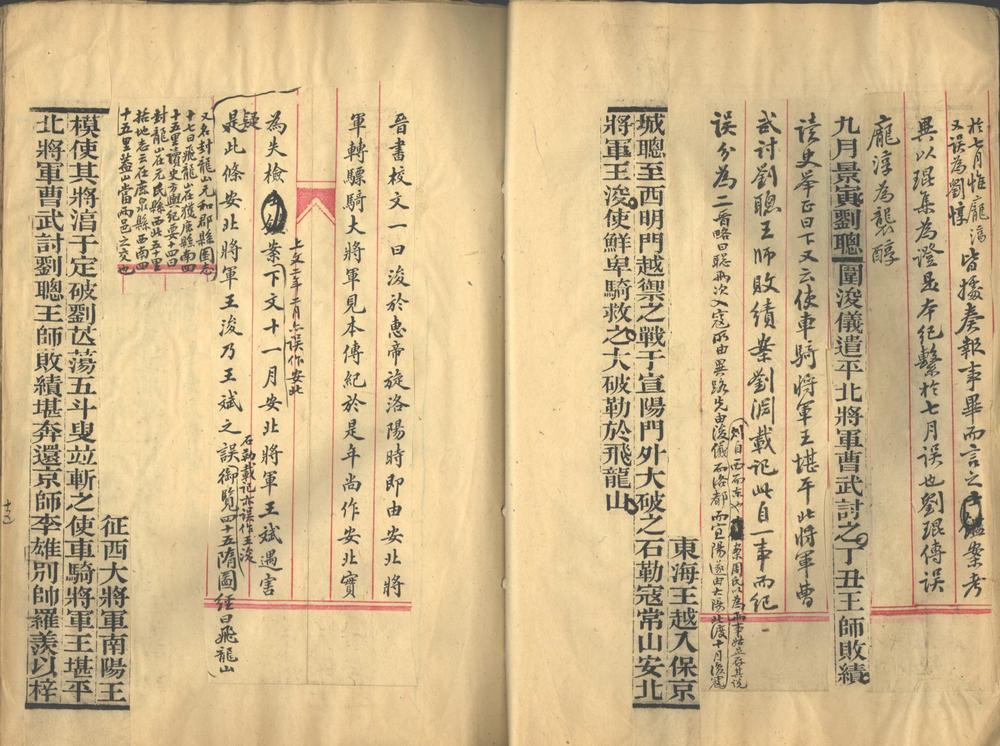 於七月惟龐淳皆據奏報事畢而言之考
又誤為劉惇
異以琨集為證是本紀繫於七月誤也劉琨傳誤
龐淳為襲醇
九月景寅劉聰圍浚儀遣平北將軍曹武討之丁丑王師敗績
讀史舉正曰下又云使車騎將軍王堪平北將軍曹
武討劉聰王師敗績案劉淵載記此自一事而紀
誤分為二晉略曰聰兩次入寇所由異路先由浚儀
案周氏以為兩事姑存其說
東海王越入保京
城聰至西明門越禦之戰于宣陽門外大破之石勒寇常山安北
將軍王浚使鮮卑騎救之大破勒於飛龍山
晉書校文一曰浚於惠帝旋洛陽時即由安北將
軍轉驃騎大將軍見本傳紀於是年尚作安北實
上文三年二月亦誤作安北
為失檢案下文十一月安北將軍王斌遇害
石勒載記亦誤作王浚
疑是此條安北將軍王浚乃王斌之誤御覽四十五隋圖經曰飛龍山
又名封龍山元和郡縣圖志
十七曰飛龍山在獲鹿縣南四
十五里讀史方輿紀要十四曰
封龍山在元氏縣西北五十里
括地志云在鹿泉縣西南四
十五里蓋山當兩邑之交也
征西大將軍南陽王
模使其將淳于定破劉芒蕩五斗叟並斬之使車騎將軍王堪平
北將軍曹武討劉聰王師敗績堪奔還京師李雄別帥羅羨以梓